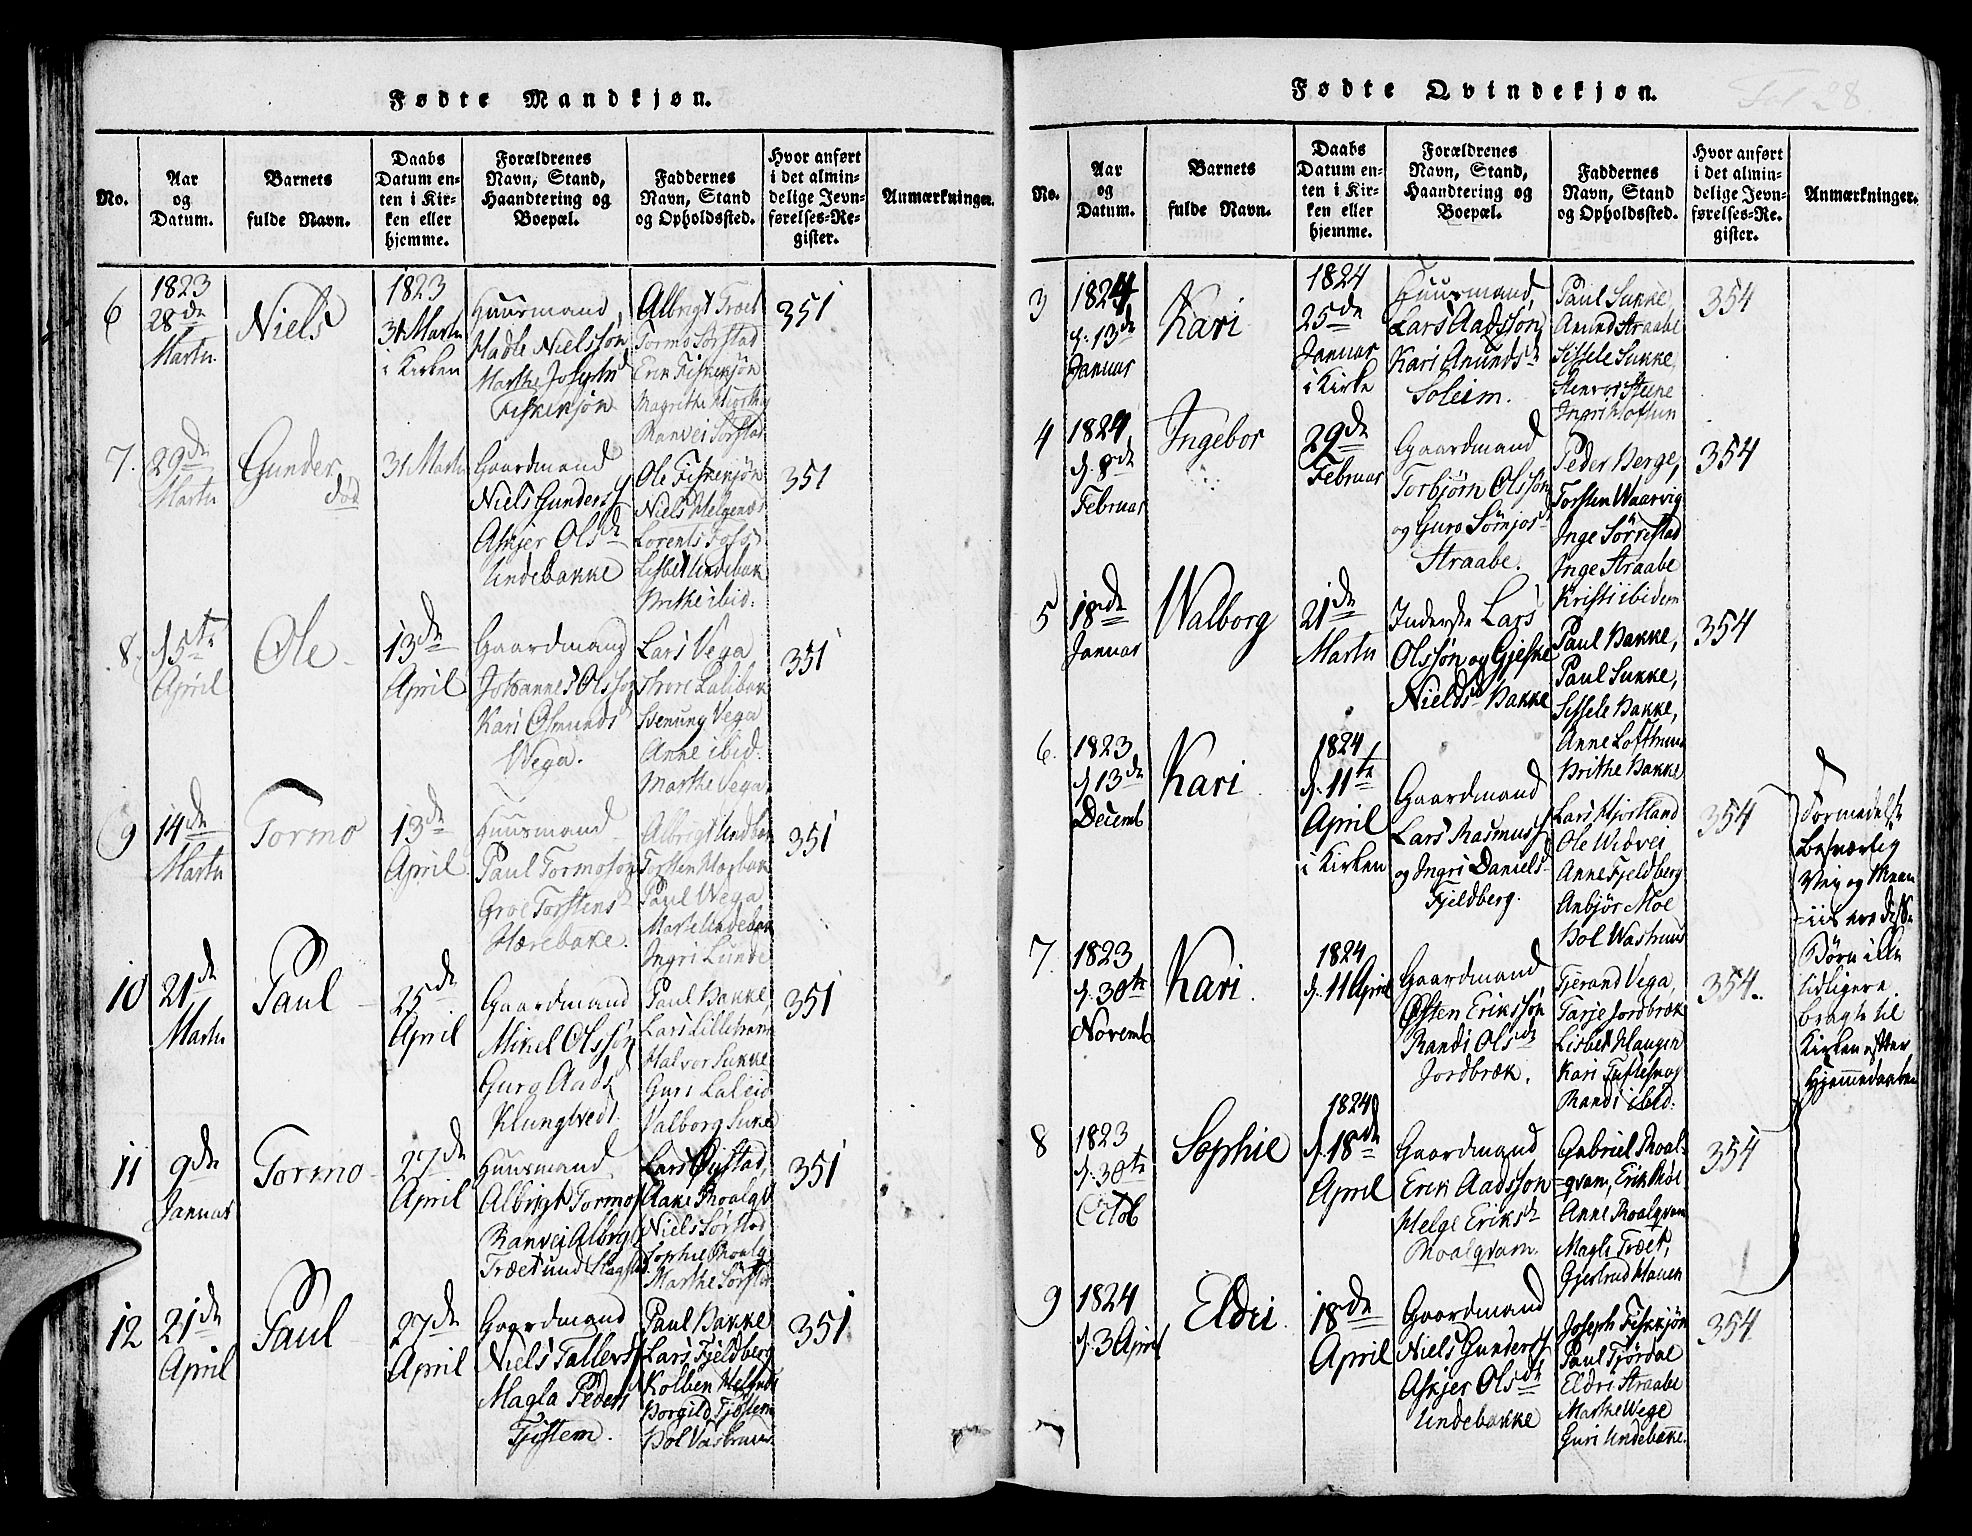 Fødte Mandkjøn.
No.
Aar
og
Datum.
Barnets
fulde Navn.
Daabs
Datum en-
ten i Kir-
ken eller
hjemme.
Forældrenes
Navn, Stand,
Haandtering og
Boepæl.
Faddernes
Navn, Stand
og Opholdssted.
Hvor anført
i det almin-
delige Jevn-
førelses-Re-
gister.
Anmærkninger.
6
1823
28de
Marts
Niels
1823
31 Marts
i Kirken
Huusmand,
Madle Nielssøn
Marthe Josephsd
Fiskesjøn
Albrigt Træet
Tormo Sørstad
Erik Fiskesjøn
Ranvei Sørstad
351
7.
29de
Marts
Gunder
død
31 Marts
Gaardmand
Niels Gunders
Askjer Olsd
Undebakke
Ole Fiskesjøn
Niels Helgenæs
Lorents Foss
Lisbet Undebak
Brithe ibid.
351
8.
5te
April
Ole
13de
April
Gaardmand
Johannes Olssøn
Kari Osmunds
Wega.
Lars Vega
Svenung Vega
Anne ibid.
Marthe Vega
351
9
14de
Marts
Tormo
13de
April
Huusmand
Paul Tormosøn
Groe Torstens
Hærebake.
Albrigt Undbak
Paul Wega
Ingri Lunde
351
10
21de
Marts
Paul
25de
April
Gaardmand
Mikel Olssøn
Guro Aads
Klungtvedt
Paul Bakke,
Halvor Sukke
Guri Laleid
Valborg Suke
351
11
9de
Januar
Tormo
27de
April
Huusmand
Albrigt Tormos
Ranvei Albrgt
Lars Øistad,
Niels Sørstad
Sophie Roalq
Marthe Sørstad
351
12
21de
April
Paul
27de
April
Gaardmand
Niels Tallers
Magla Peders
Tjistem.
Paul Bakke
Lars Fjeldberg
Borgild Tjostem
351
Fødte Qvindekjøn.
Fol 28
No.
Aar
og
Datum.
Barnets
fulde Navn.
Daabs
Datum en-
ten i Kir-
ken eller
hjemme.
Forældrenes
Navn, Stand,
Haandtering og
Boepæl.
Faddernes
Navn, Stand
og Opholdssted.
Hvor anført
i det almin-
delige Jevn-
førelses-Re-
gister.
Anmærkninger.
3
1824
d. 13de
Januar
Kari
1824
25de
Januar
i Kirke
Huusmand,
Lars Aadssøn,
Kari Anunds
Soleim.
Paul Sukke,
Anund Straabe
Sissele Sukke,
354
4
1824
d. 8de
Februar
Ingebor
29de
Februar
Gaardmand
Torbjørn Olssøn
og Guro
Straabe.
Peder Berge,
Torsten Waarvig
Inge Sørrestad
Inge Straabe
Kristi ibidem
354
5
18de
Januar
Walborg
21de
Marts
Inderste Lars
Olssøn og Gjeske
Nields Bakke
Paul Bakke,
Paul Sukke,
Sissele Bakke,
Anne Lofthuus
Brithe Bakke
354
6.
1823
d 13de
Decemb
Kari
1824
d. 11te
April
i Kirken
Gaardmand
Lars Rasmuss
og Ingri Daniels
Fjeldberg.
Lars Hjortland
Ole Widvei
Anne Fjeldberg
Anbjør Moe
Hol Wastuus
354
Formedelst
besværlig
Vei og Menn-
iis ere disse
Børn ikke
tidligere
bragte til
Kirken efter
Hjemmedaaben
7.
1823
d. 30te
Novemb
Kari.
1824
d. 11 April
Gaardmand
Østen Erikssøn
Randi Olsd
Jordbræk.
Tjerand Vega,
Tarje Jordbræk
Lisbet Haugen
Randi ibid:
354.
8
1823
d. 30te
Octob
Sophie
1824
d. 18de
April
Gaardmand
Erik Aadsson
Helge Eriksd
Roalqvam.
Gabriel Roal-
qvam, Erik
Anne Roalqvam
Magli Træet,
Gjertrud Hauen
354
9
1824
d. 3 April
Eldri
18de
April
Gaardmand
Niels Gunders
Askjer Olsd
Undebakke
Joseph Fiskesjøn
Paul Tjørdal
Eldri Straabe
Marthe Wege
Guri Undebakke.
354